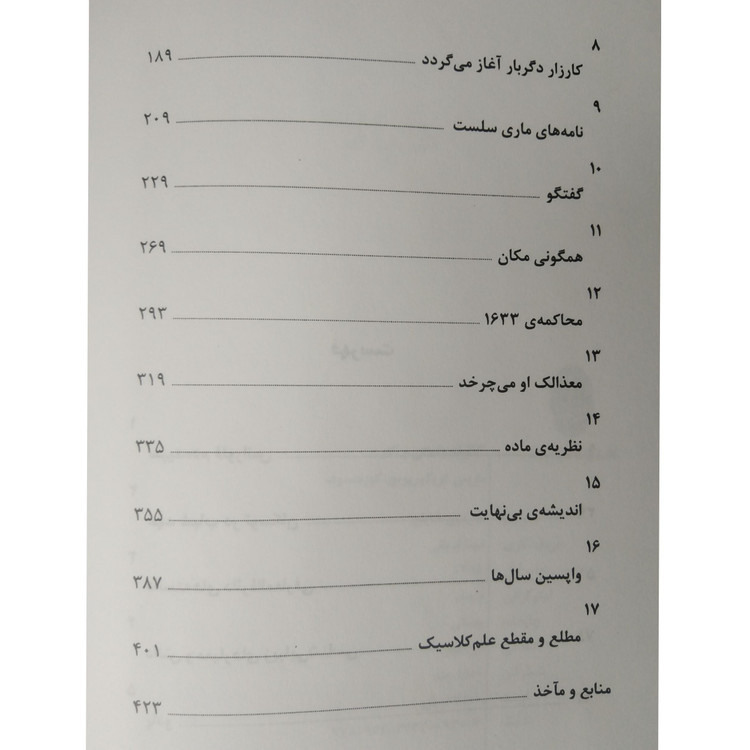 ۸
کارزار دگربار آغاز می‌گردد ۱۸۹
۹
نامه‌های ماری سلست ۲۰۹
۱۰
گفتگو ۲۲۹
۱۱
همگونی مکان ۲۶۹
۱۲
محاکمه‌ی ۱۶۳۳ ۲۹۳
۱۳
معذالک او می‌چرخد ۳۱۹
۱۴
نظریه‌ی ماده ۳۳۵
۱۵
اندیشه‌ی بی‌نهایت ۳۵۵
۱۶
واپسین سال‌ها ۳۸۷
۱۷
مطلع و مقطع علم کلاسیک ۴۰۱
منابع و مآخذ ۴۲۳